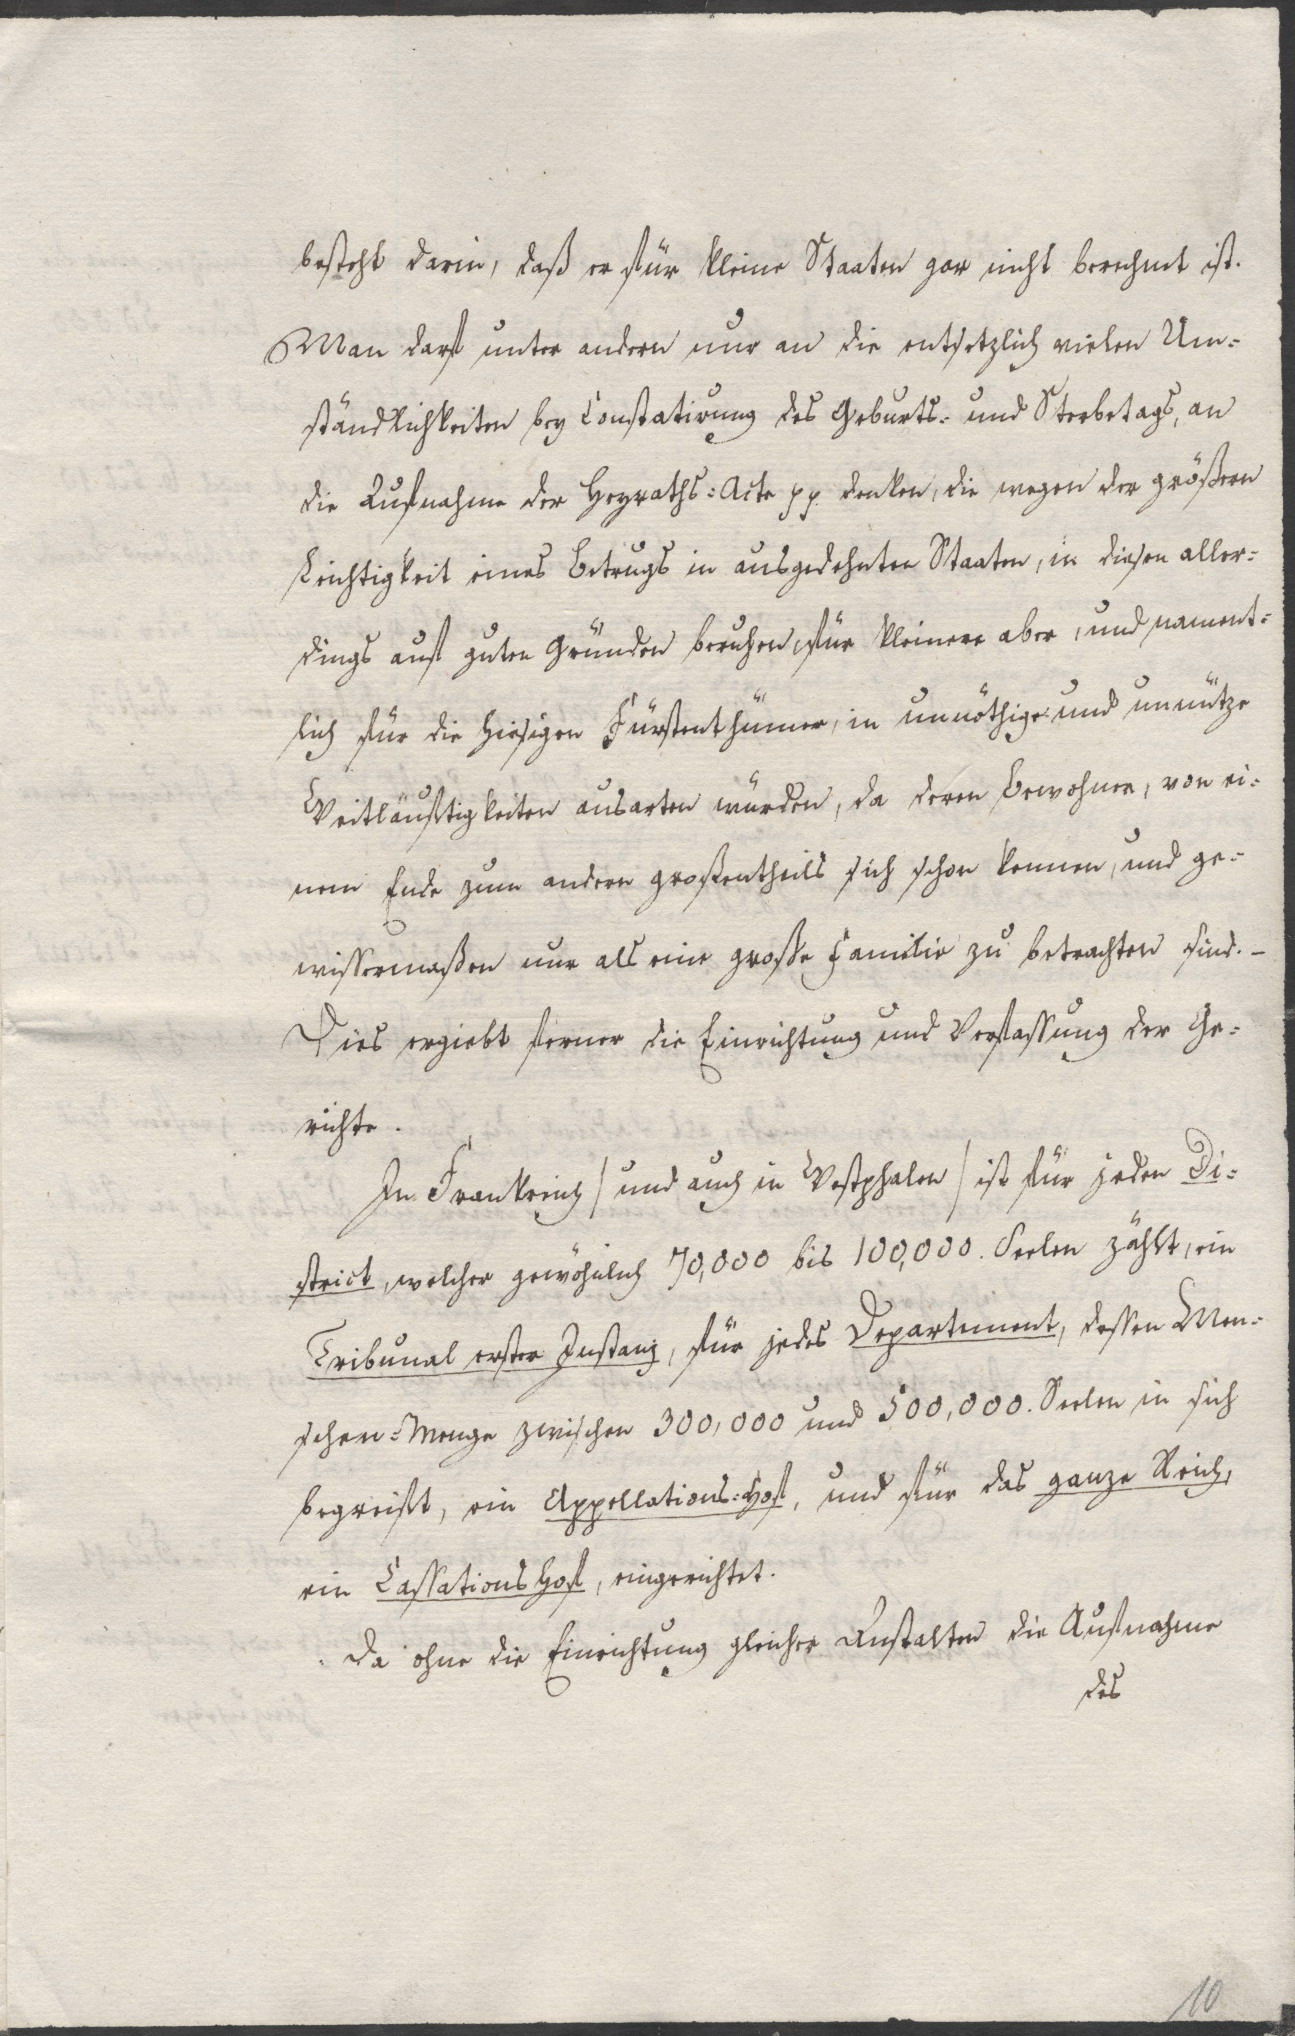 besteht darin, daß er für kleine Staaten gar nicht berechnet ist.
Man darf unter andern nur an die entsetzlich vielen Um=
ständlichkeiten bey Constatirung des Geburts= und Sterbetags, an
die Aufnahme der Heyraths=Acte pp. denken, die wegen der größern
Leichtigkeit eines Betrugs in ausgedehnten Staaten, in diesen aller=
dings auf guten Gründen beruhen, für kleinere aber, und nament=
lich für die hiesigen Fürstenthümer, in unnöthige und unnütze
Weitläuftigkeiten ausarten würden, da deren Bewohner, von ei=
nem Ende zum andern großentheils sich schon kennen, und ge=
wissermaßen nur als eine große Familie zu betrachten sind. –
Dies ergiebt ferner die Einrichtung und Verfassung der Ge=
richte.
In Frankreich / und auch in Westphalen / ist für jeden Di=
strict, welcher gewöhnlich 70,000 bis 100,000. Seelen zählt, ein
Tribunal erster Instanz, für jedes Departement, dessen Men=
schen=Menge zwischen 300,000 und 500,000. Seelen in sich
begreift, ein Appellations=Hof, und für das ganze Reich,
ein Cassations Hof, eingerichtet.
Da ohne die Einrichtung gleicher Anstalten die Aufnahme
des
10